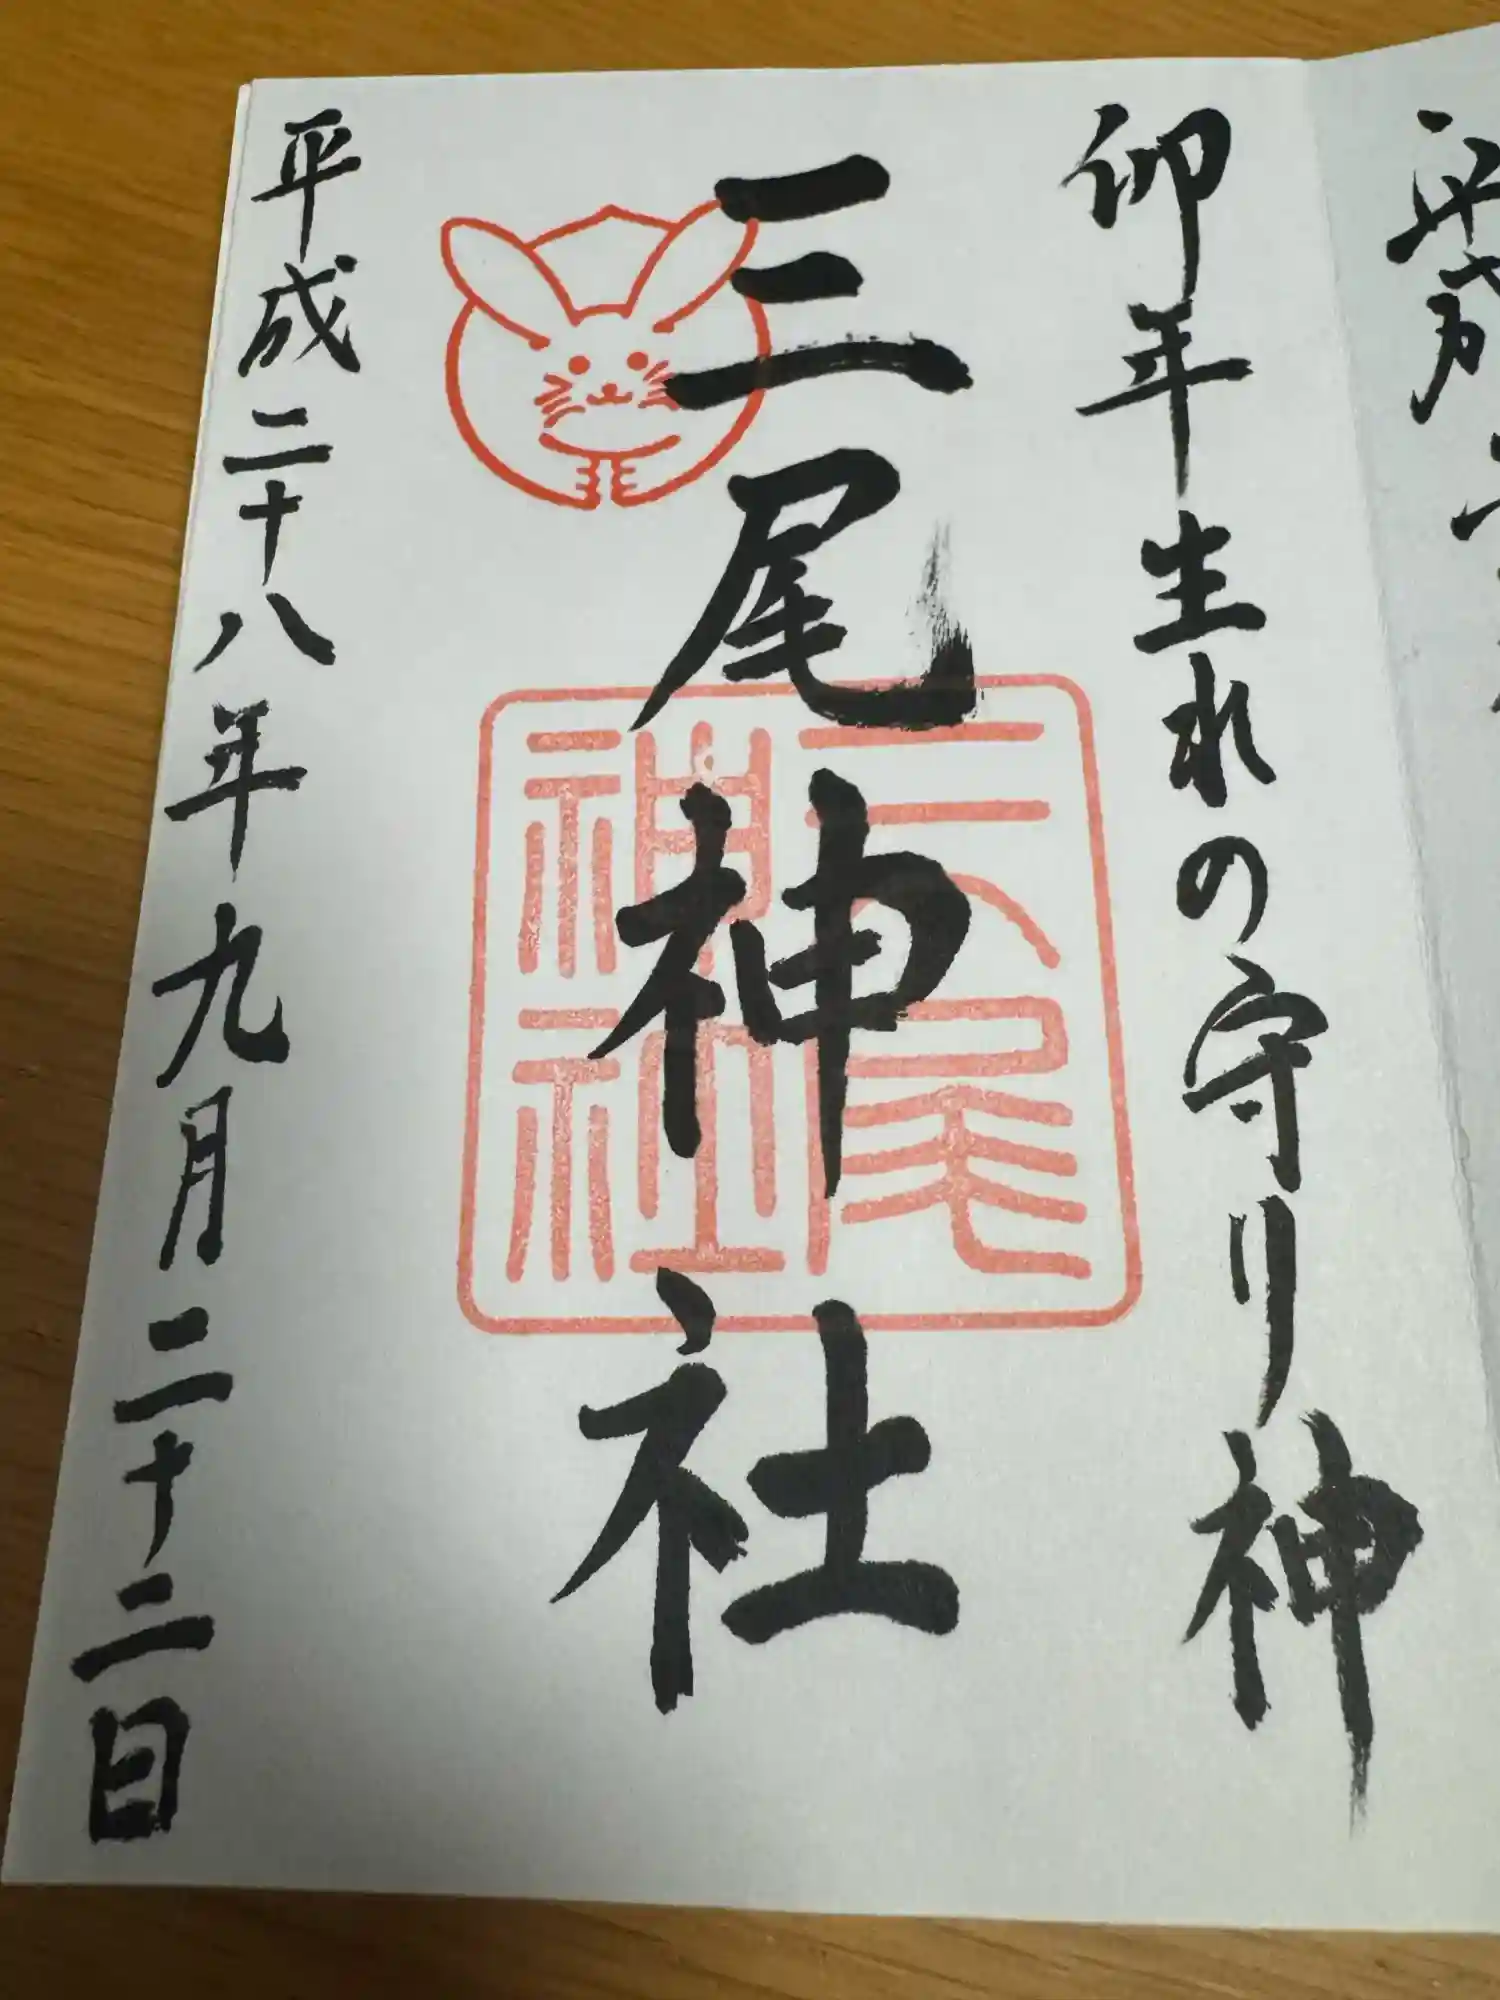 卯年生れの守り神
三尾神社
三尾神社
平成二十八年九月二十二日